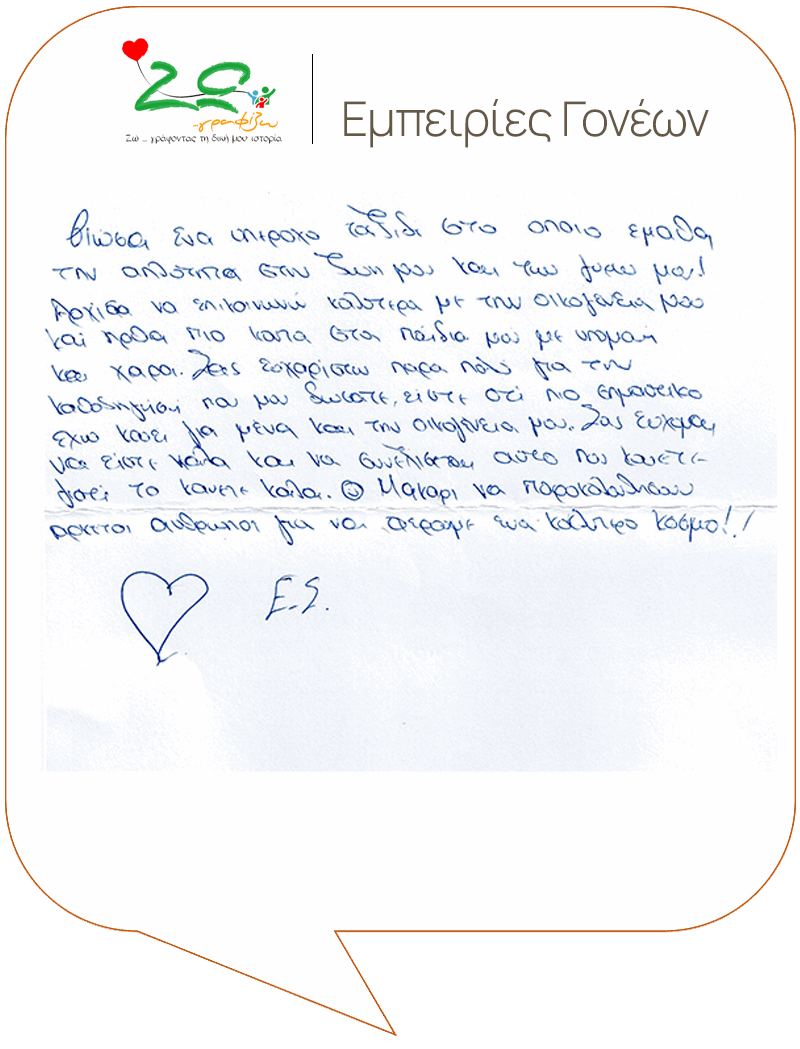 Ζω
-γραφίζω
Ζω - γράφοντας τη δική μου ιστορία
Εμπειρίες Γονέων
Βιωσα ένα υπεροχο ταξιδι στο οποιο εμαθα
την απλοτητα στην ζωη μου και των γυρω μου!
Αρχισα να επικοινωνώ καλυτερα με την οικογένεια μου
και ηρθα πιο κοντα στα παιδια μου με υπομονη
και χαρα. Σας ευχαριστω παρα πολυ για την
καθοδηγηση που μου δωσατε, είστε οτι πιο σημαντικο
εχω κανει για μένα και την οικογένεια μου. Σας ευχομαι
να είστε καλα και να συνεχισετε αυτο που κανετε
γιατι το κανετε καλα. ☺ Μακαρι να παρακολουθησουν
αρκετοι ανθρωποι για να φερουμε ενα καλυτερο κοσμο!!
Ε.Σ.